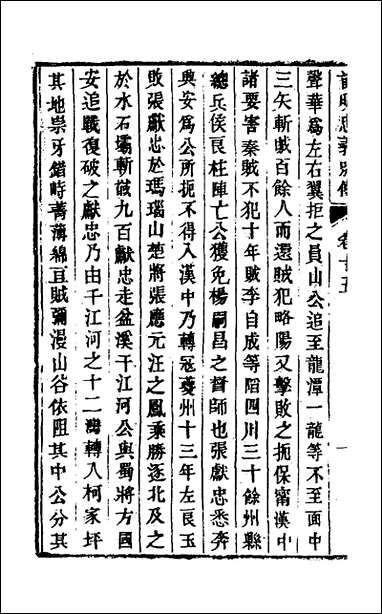 前明忠義別傳 卷廿五 一
聲華爲左右翼拒之員山公追至龍潭一龍等不至面中
三矢斬賊百餘人而還賊犯略陽又擊敗之扼保甯漢中
諸要害秦賊不犯十年賊李自成等陷四川三十餘州縣
總兵侯良柱陣亡公獲免楊嗣昌之督師也張獻忠悉奔
興安爲公所扼不得入漢中乃轉寇夔州十三年左良玉
敗張獻忠於瑪瑙山楚將張應元汪之鳳乘勝逐北及之
於水石壩斬馘九百獻忠走盆溪千江河公與蜀將方國
安追戰復破之獻忠乃由千江河之十二灣轉入柯家坪
其地崇牙錯峙菁薄綿亘賊彌漫山谷依阻其中公分其